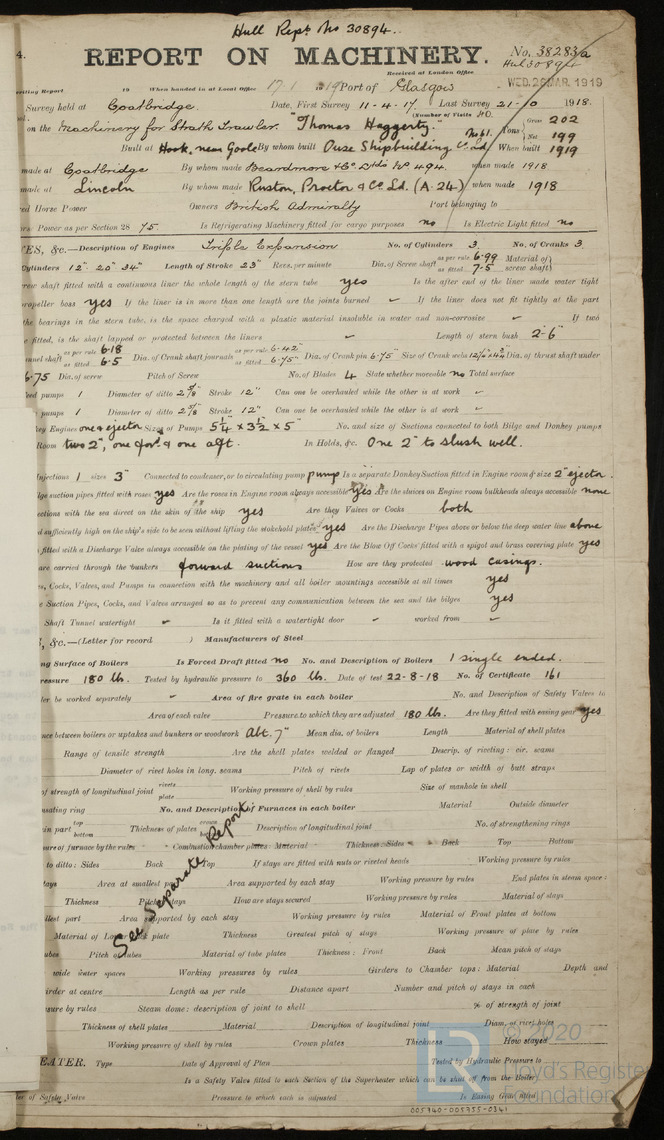 Hull Rept No 30894.
4.
REPORT ON MACHINERY.
No. 38283/a
Hul 30894
Received at London Office
WED. 26 MAR. 1919
Writing Report 19 When handed in at Local Office 17.1 1919 Port of Glasgow
Survey held at Coatbridge. Date, First Survey 11-4-17. Last Survey 21-10 1918.
(Number of Visits 40.
on the Machinery for Strath Trawler. "Thomas Haggerty." No 61. Tons Gross 202 Net 199
Built at Hook, near Goole By whom built Ouse Shipbuilding Co Ld. When built 1919
made at Coatbridge By whom made Beardmore & Co Ltd No 494. when made 1918
made at Lincoln By whom made Ruston, Proctor & Co. Ld. (A.24) when made 1918
Horse Power Owners British Admiralty Port belonging to
Horse Power as per Section 28 75. Is Refrigerating Machinery fitted for cargo purposes no Is Electric Light fitted no
ES, &c.—Description of Engines Triple Expansion No. of Cylinders 3 No. of Cranks 3
Cylinders 12" 20" 34" Length of Stroke 23" Revs. per minute Dia. of Screw shaft as per rule 6.99 as fitted 7.5 Material of screw shaft
screw shaft fitted with a continuous liner the whole length of the stern tube yes Is the after end of the liner made water tight
propeller boss yes If the liner is in more than one length are the joints burned ✓ If the liner does not fit tightly at the part
the bearings in the stern tube, is the space charged with a plastic material insoluble in water and non-corrosive ✓ If two
fitted, is the shaft lapped or protected between the liners ✓ Length of stern bush 2-6"
Tunnel shaft as per rule 6.18 as fitted 6.5 Dia. of Crank shaft journals as per rule 6.42" as fitted 6.75" Dia. of Crank pin 6.75" Size of Crank webs Dia. of thrust shaft under
6.75 Dia. of screw Pitch of Screw No. of Blades 4 State whether moveable no Total surface
eed pumps 1 Diameter of ditto 2 5/8" Stroke 12" Can one be overhauled while the other is at work ✓
pumps 1 Diameter of ditto 2 5/8" Stroke 12" Can one be overhauled while the other is at work ✓
key Engines one & ejector Sizes of Pumps 5¼ × 3½ × 5" No. and size of Suctions connected to both Bilge and Donkey pumps
Room two 2", one ford & one aft. In Holds, &c. One 2" to slush well.
Injections 1 sizes 3" Connected to condenser, or to circulating pump pump Is a separate Donkey Suction fitted in Engine room & size 2" ejector.
lge suction pipes fitted with roses yes Are the roses in Engine room always accessible yes Are the sluices on Engine room bulkheads always accessible none
ections with the sea direct on the skin of the ship yes Are they Valves or Cocks both
d sufficiently high on the ship's side to be seen without lifting the stokehold plates yes Are the Discharge Pipes above or below the deep water line above
fitted with a Discharge Valve always accessible on the plating of the vessel yes Are the Blow Off Cocks fitted with a spigot and brass covering plate yes
are carried through the bunkers forward suctions How are they protected wood casings.
es, Cocks, Valves, and Pumps in connection with the machinery and all boiler mountings accessible at all times yes
e Suction Pipes, Cocks, and Valves arranged so as to prevent any communication between the sea and the bilges yes
Shaft Tunnel watertight ✓ Is it fitted with a watertight door ✓ worked from ✓
, &c.—(Letter for record ) Manufacturers of Steel
ng Surface of Boilers Is Forced Draft fitted no No. and Description of Boilers 1 single ended.
ressure 180 lb. Tested by hydraulic pressure to 360 lb. Date of test 22-8-18 No. of Certificate 161
er be worked separately ✓ Area of fire grate in each boiler No. and Description of Safety Valves to
Area of each valve Pressure to which they are adjusted 180 lb. Are they fitted with easing gear yes
nce between boilers or uptakes and bunkers or woodwork abt. 7" Mean dia. of boilers Length Material of shell plates
Range of tensile strength Are the shell plates welded or flanged Descrip. of riveting: cir. seams
Diameter of rivet holes in long. seams Pitch of rivets Lap of plates or width of butt straps
of strength of longitudinal joint rivets plate Working pressure of shell by rules Size of manhole in shell
nsating ring No. and Description of Furnaces in each boiler Material Outside diameter
in part top bottom Thickness of plates crown Description of longitudinal joint No. of strengthening rings
sure of furnace by the rules Combustion chamber plates: Material Thickness: Sides Back Top Bottom
to ditto: Sides Back Top If stays are fitted with nuts or riveted heads Working pressure by rules
tays Area at smallest part Area supported by each stay Working pressure by rules End plates in steam space:
Thickness Pitch of stays How are stays secured Working pressure by rules Material of stays
llest part Area supported by each stay Working pressure by rules Material of Front plates at bottom
Material of Lower back plate Thickness Greatest pitch of stays Working pressure of plate by rules
ubes Pitch of tubes Material of tube plates Thickness: Front Back Mean pitch of stays
wide water spaces Working pressures by rules Girders to Chamber tops: Material Depth and
irder at centre Length as per rule Distance apart Number and pitch of stays in each
sure by rules Steam dome: description of joint to shell % of strength of joint
See Separate Report
Thickness of shell plates Material Description of longitudinal joint Diam. of rivet holes
Working pressure of shell by rules Crown plates Thickness How stayed
EATER. Type Date of Approval of Plan Tested by Hydraulic Pressure to
Is a Safety Valve fitted to each Section of the Superheater which can be shut off from the Boiler
er of Safety Valve Pressure to which each is adjusted Is Easing Gear fitted
© 2020
Lloyd's Register
Foundation
005340-005355-0341